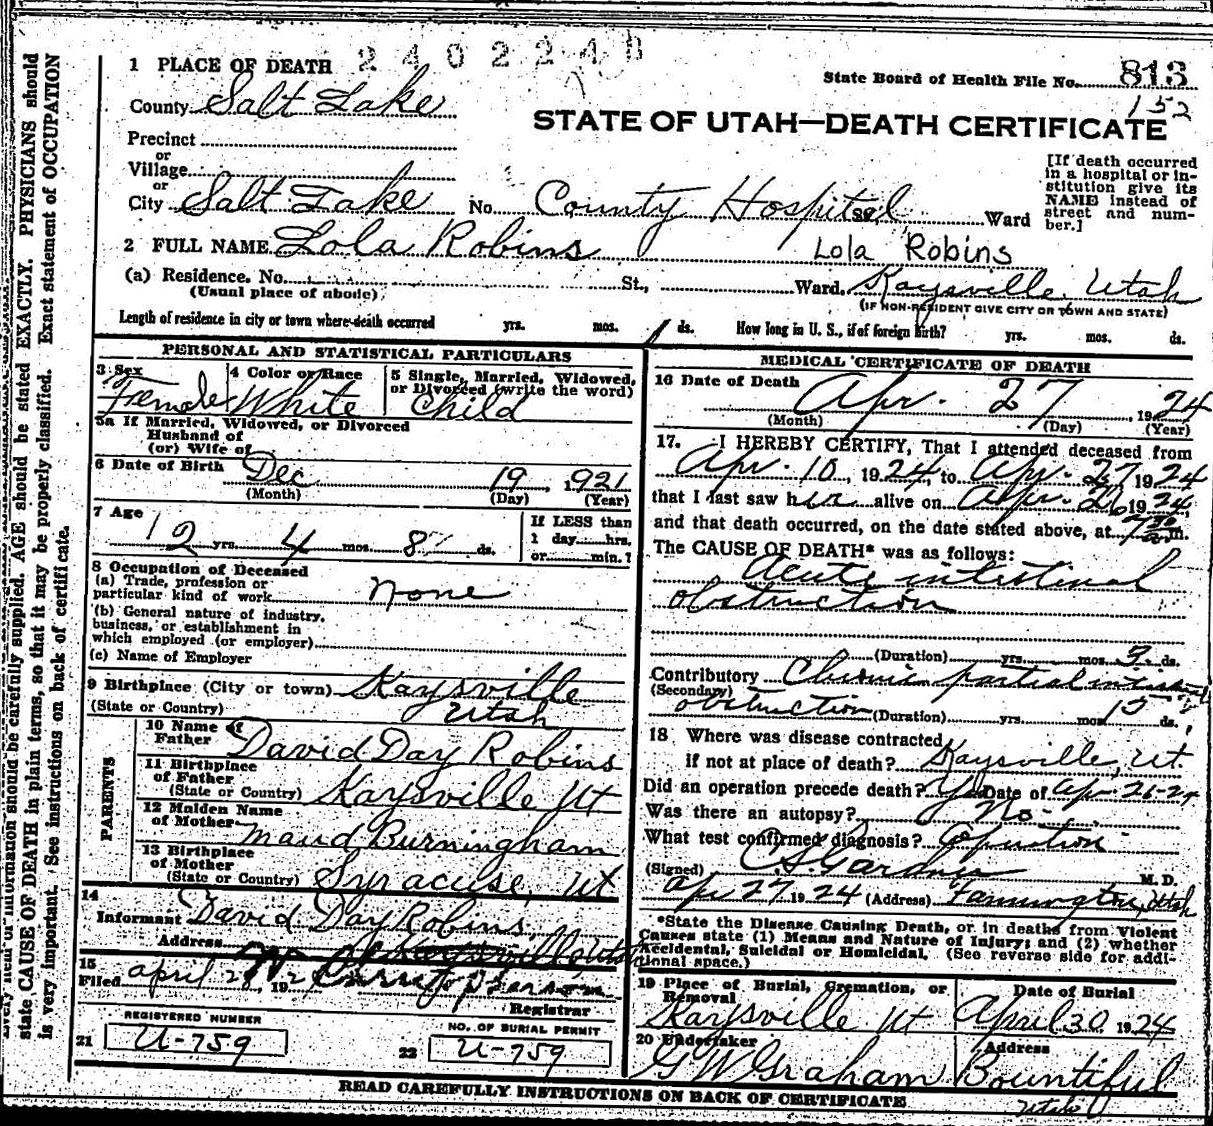 240224B
1 PLACE OF DEATH
State Board of Health File No. 813
152
County Salt Lake
STATE OF UTAH—DEATH CERTIFICATE
Precinct
or
Village
or
City Salt Lake No. County Hospital St., Ward
[If death occurred
in a hospital or in-
stitution give its
NAME instead of
street and num-
ber.]
2 FULL NAME Lola Robins Lola Robins
(a) Residence. No. St., Ward. Kaysville, Utah
(Usual place of abode)
(IF NON-RESIDENT GIVE CITY OR TOWN AND STATE)
Length of residence in city or town where death occurred yrs. mos. 1 ds. How long in U. S., if of foreign birth? yrs. mos. ds.
PERSONAL AND STATISTICAL PARTICULARS
3 Sex
Female
4 Color or Race
White
5 Single, Married, Widowed,
or Divorced (write the word)
Child
5a If Married, Widowed, or Divorced
Husband of
(or) Wife of
6 Date of Birth Dec 19, 1921
(Month) (Day) (Year)
7 Age
2 yrs. 4 mos. 8 ds.
If LESS than
1 day hrs.
or min.?
8 Occupation of Deceased
(a) Trade, profession or
particular kind of work None
(b) General nature of industry,
business, or establishment in
which employed (or employer)
(c) Name of Employer
9 Birthplace (City or town) Kaysville
(State or Country) Utah
PARENTS
10 Name of
Father David Day Robins
11 Birthplace
of Father
(State or Country) Kaysville Ut
12 Maiden Name
of Mother Maud Burningham
13 Birthplace
of Mother
(State or Country) Syracuse, Ut
14
Informant David Day Robins
Address
15
Filed April 28, 192
Registrar
REGISTERED NUMBER
21 U-759
NO. OF BURIAL PERMIT
22 U-759
MEDICAL CERTIFICATE OF DEATH
16 Date of Death Apr. 27, 1924
(Month) (Day) (Year)
17. I HEREBY CERTIFY, That I attended deceased from
Apr. 10, 1924, to Apr. 27, 1924
that I last saw her alive on Apr. 26 1924,
and that death occurred, on the date stated above, at 7 30 a.m.
The CAUSE OF DEATH* was as follows:
Acute intestinal
obstruction
(Duration) yrs. mos. 3 ds.
Contributory Chronic partial intestinal
(Secondary) obstruction (Duration) yrs. mos. 15 ds.
18 Where was disease contracted
if not at place of death? Kaysville, Ut.
Did an operation precede death? Yes Date of Apr 26-24
Was there an autopsy? No
What test confirmed diagnosis? Operation
(Signed) C. S. Gardner M. D.
Apr 27 1924 (Address) Farmington, Utah
*State the Disease Causing Death, or in deaths from Violent
Causes state (1) Means and Nature of Injury; and (2) whether
Accidental, Suicidal or Homicidal. (See reverse side for addi-
tional space.)
19 Place of Burial, Cremation, or
Removal
Kaysville Ut
Date of Burial
April 30 1924
20 Undertaker
G W Graham
Address
Bountiful
Utah
READ CAREFULLY INSTRUCTIONS ON BACK OF CERTIFICATE
information should be carefully supplied. AGE should be stated EXACTLY. PHYSICIANS should
state CAUSE OF DEATH in plain terms, so that it may be properly classified. Exact statement of OCCUPATION
is very important. See instructions on back of certificate.